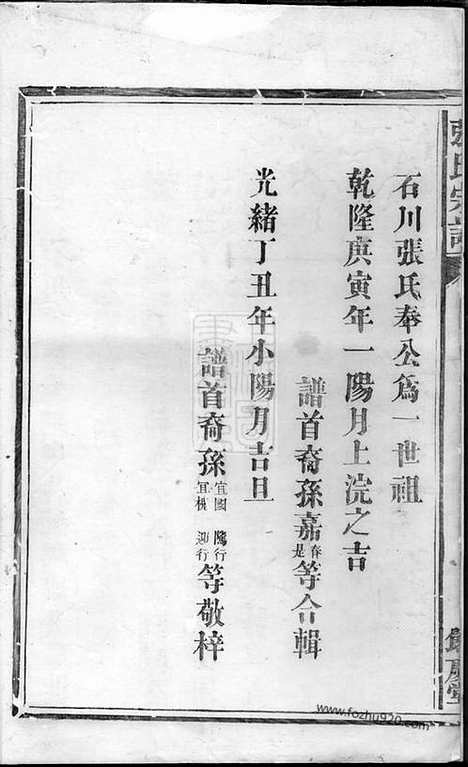 張氏宗譜
石川張氏奉公爲一世祖
乾隆庚寅年一陽月上浣之吉
譜首裔孫嘉春是等合輯
光緒丁丑年小陽月吉旦
譜首裔孫宜國宜楓行行等敬梓
www.fozhu920.com